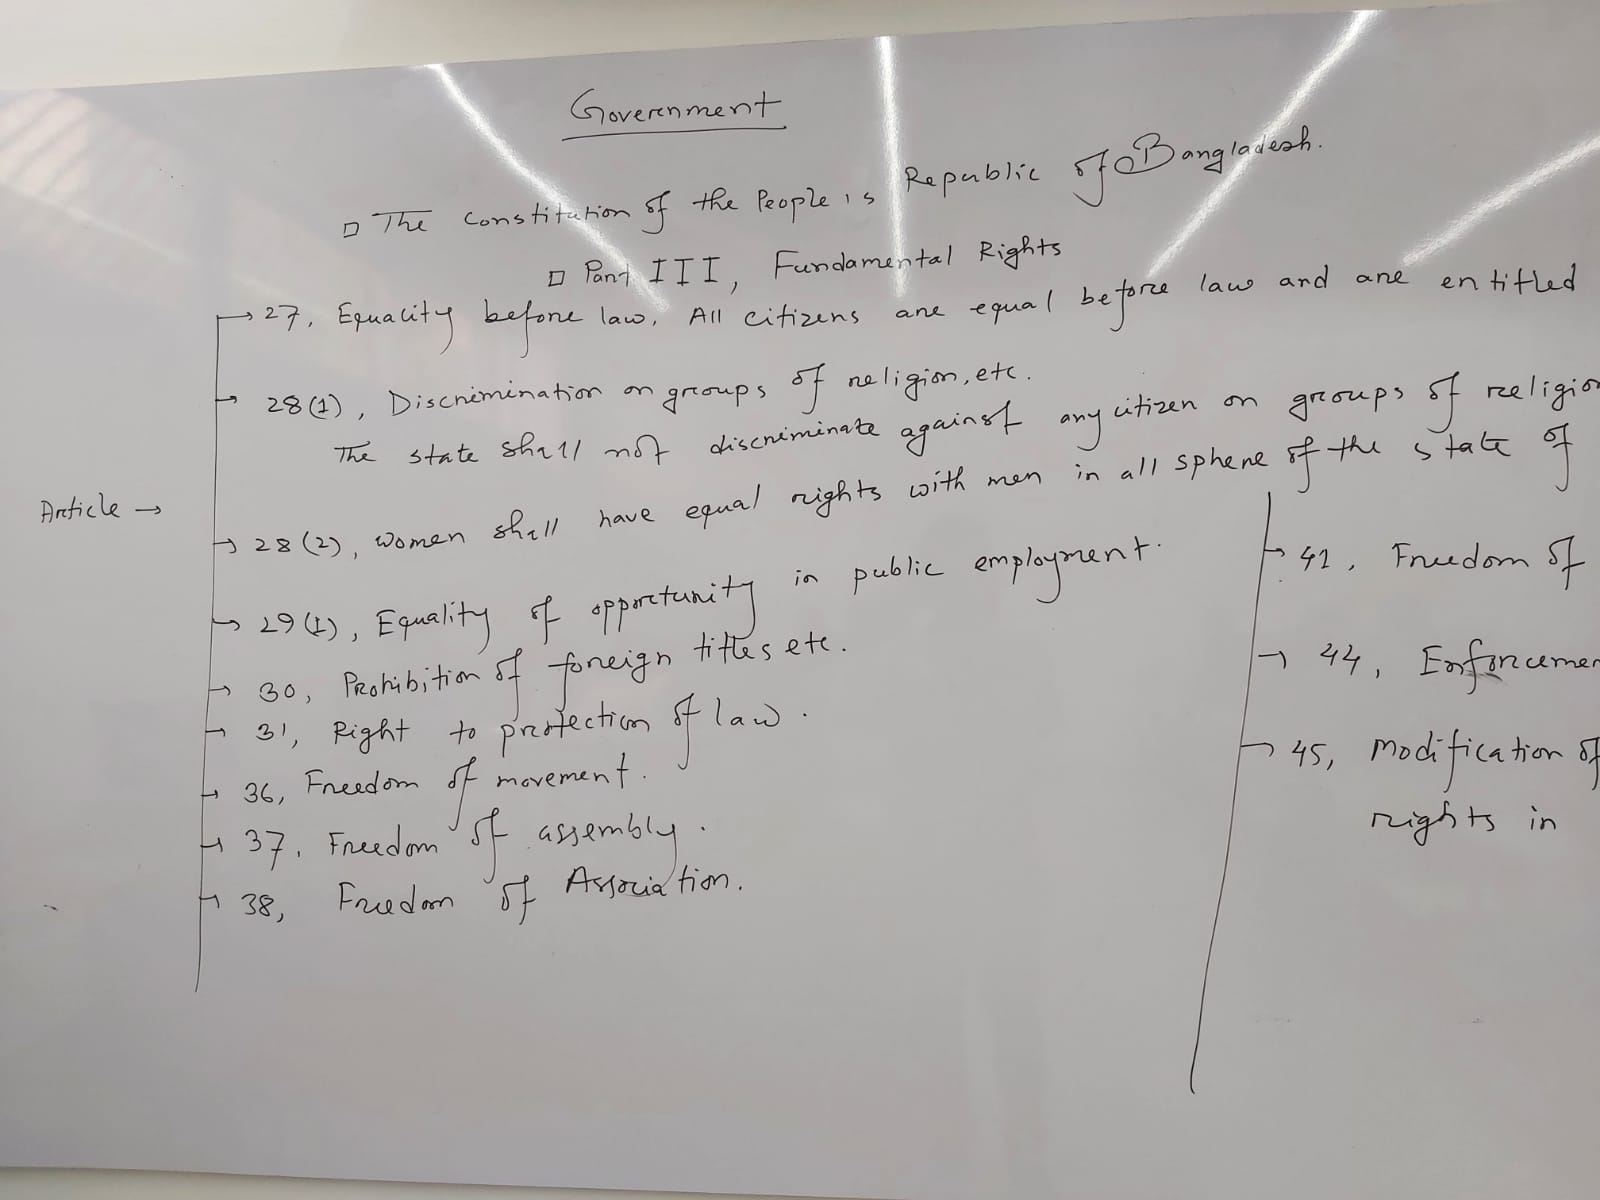 Government
□ The Constitution of the People is Republic of Bangladesh.
□ Part III, Fundamental Rights
Article →
→ 27, Equality before law, All citizens are equal before law and are entitled
→ 28(1), Discrimination on groups of religion, etc.
The state shall not discriminate against any citizen on groups of religion
→ 28(2), women shall have equal rights with men in all sphere of the state of
→ 29(1), Equality of opportunity in public employment.
→ 30, Prohibition of foreign titles etc.
→ 31, Right to protection of law.
→ 36, Freedom of movement.
→ 37, Freedom of assembly.
→ 38, Freedom of Association.
→ 41, Freedom of
→ 44, Enforcemen
→ 45, Modification of
rights in